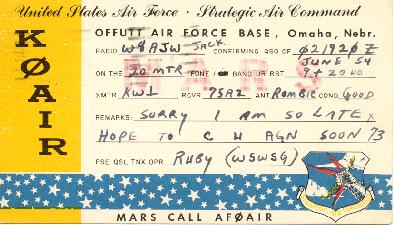 United States Air Force · Strategic Air Command
KØAIR
OFFUTT AIR FORCE BASE, Omaha, Nebr.
RADIO W8AJW JACK CONFIRMING QSO OF 021920Z
JUNE '54
ON THE 20 MTR FONE BAND UR RST 9+20DB
MARS
XMTR KW1 RCVR 75A2 ANT ROMBIC COND GOOD
REMARKS: SORRY I AM SO LATE X
HOPE TO C U AGN SOON 73
PSE QSL TNX OPR RUBY (W5WSG)
MARS CALL AFØAIR